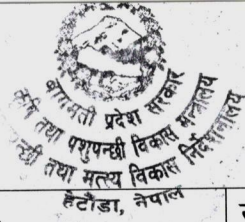 बागमती प्रदेश सरकार
कृषि तथा पशुपन्छी विकास मन्त्रालय
न्छी तथा मत्स्य विकास निर्देशनालय
हेटौंडा, नेपाल